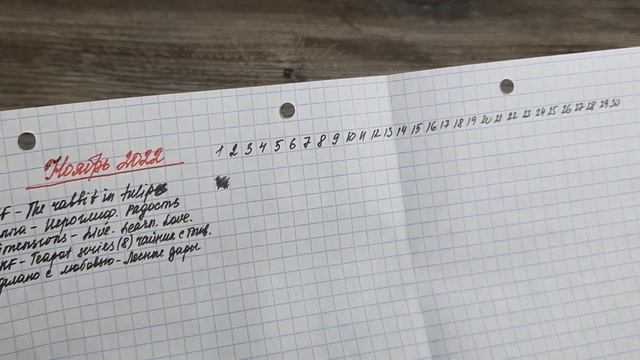 Ноябрь 2022
1 2 3 4 5 6 7 8 9 10 11 12 13 14 15 16 17 18 19 20 21 22 23 24 25 26 27 28 29 30
The rabbit in tulips
Иероглиф. Радость
Dimensions - Live. Learn. Love.
Teapot series (8) чайник с
с любовью - Лесные дары